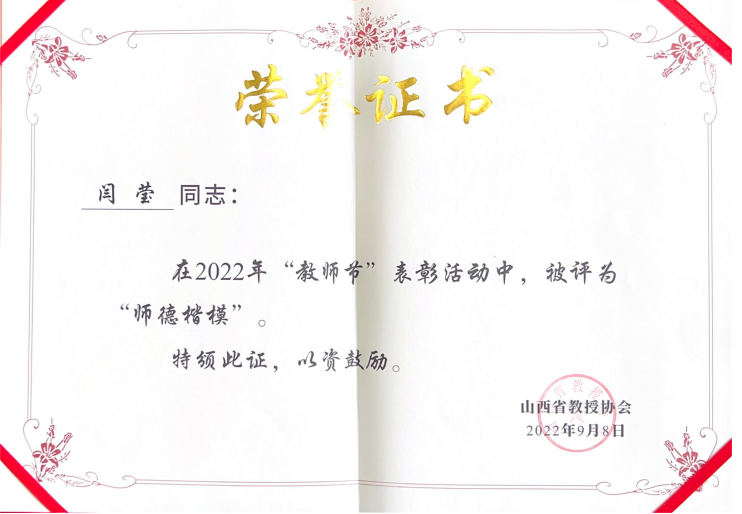 荣誉证书
闫 莹 同志：
在2022年“教师节”表彰活动中，被评为
“师德楷模”。
特颁此证，以资鼓励。
山西省教授协会
2022年9月8日